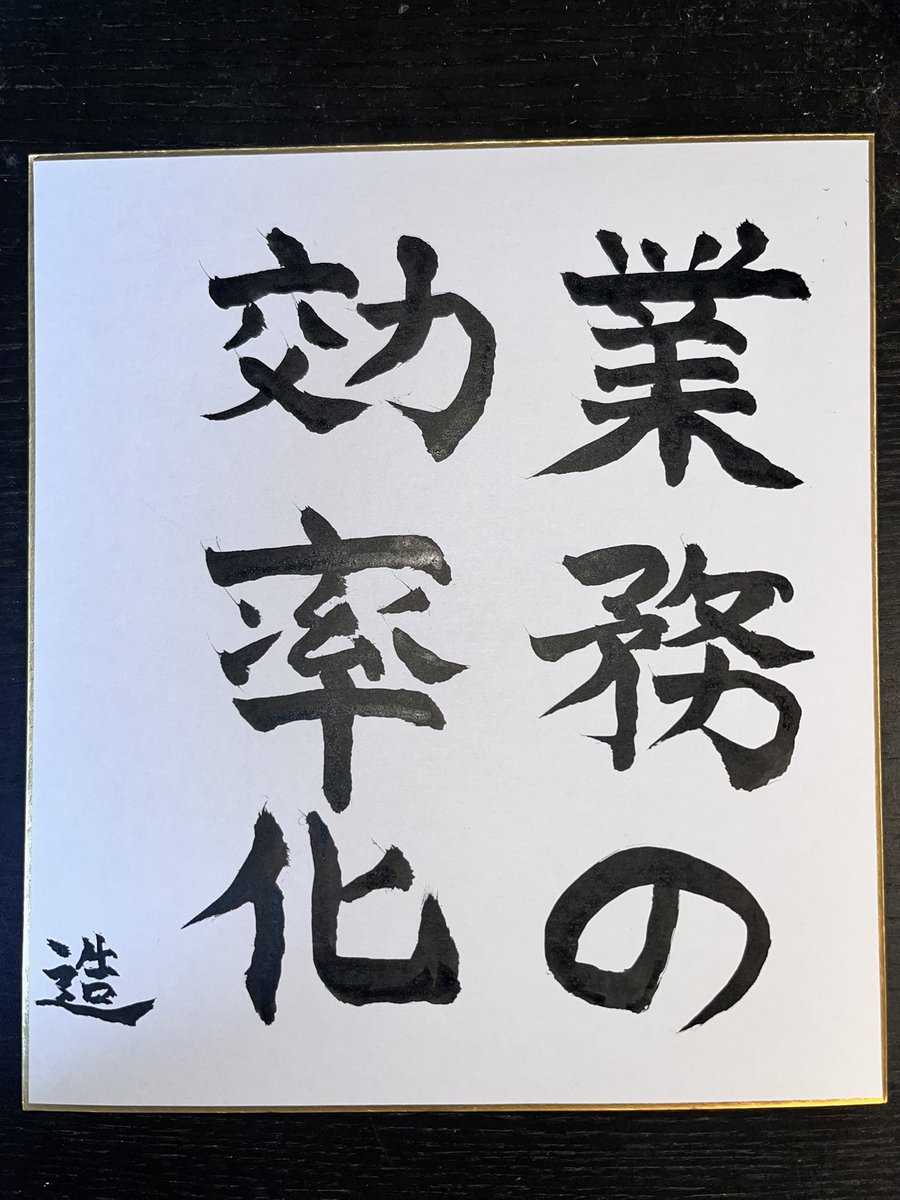 業務の
効率化
造